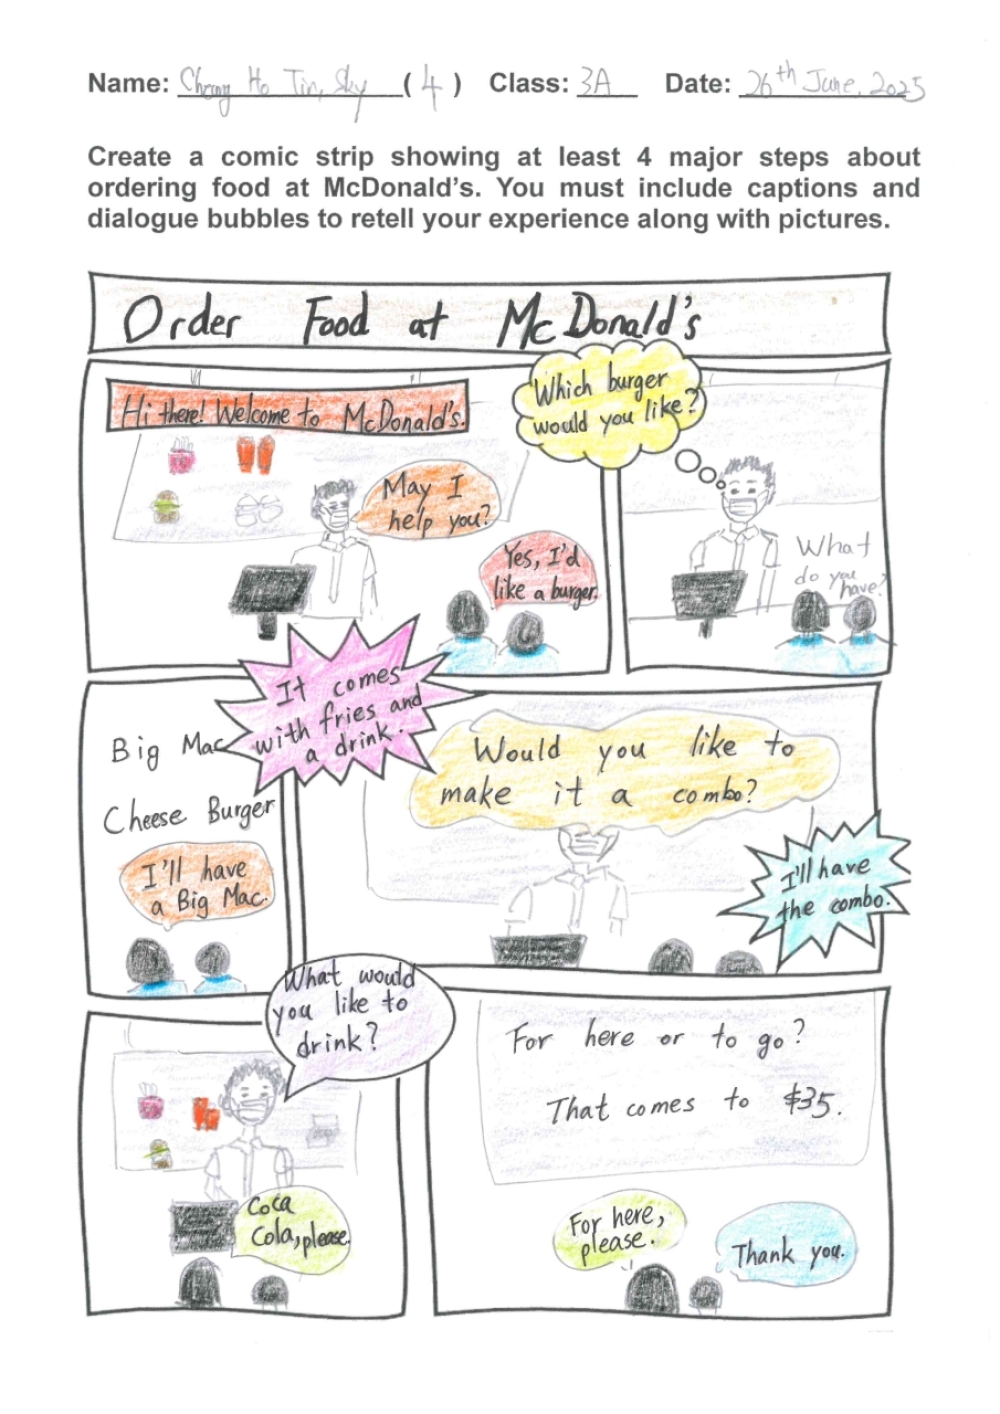 Name: Cheng Ho Tin, Sky ( 4 ) Class: 3A Date: 26th June, 2025
Create a comic strip showing at least 4 major steps about
ordering food at McDonald's. You must include captions and
dialogue bubbles to retell your experience along with pictures.
Order Food at McDonald's
Hi there! Welcome to McDonald's.
May I
help you?
Yes, I'd
like a burger.
Which burger
would you like?
What
do you
have?
Big Mac
Cheese Burger
I'll have
a Big Mac.
It comes
with fries and
a drink.
Would you like to
make it a combo?
I'll have
the combo.
What would
you like to
drink?
Coca
Cola, please.
For here or to go?
That comes to $35.
For here,
please.
Thank you.